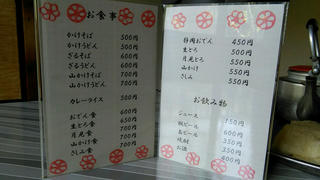 お食事
かけそば 500円
かけうどん 500円
ざるそば 600円
ざるうどん 600円
山かけそば 700円
山かけうどん 700円
カレーライス 500円
おでん食 600円
生とろ食 650円
月見食 700円
山かけ食 700円
さしみ食 700円
静岡おでん 450円
生とろ 500円
月見とろ 550円
山かけ 550円
さしみ 550円
お飲み物
ジュース 150円
瓶ビール 600円
缶ビール
焼酎 350円
お酒 400円